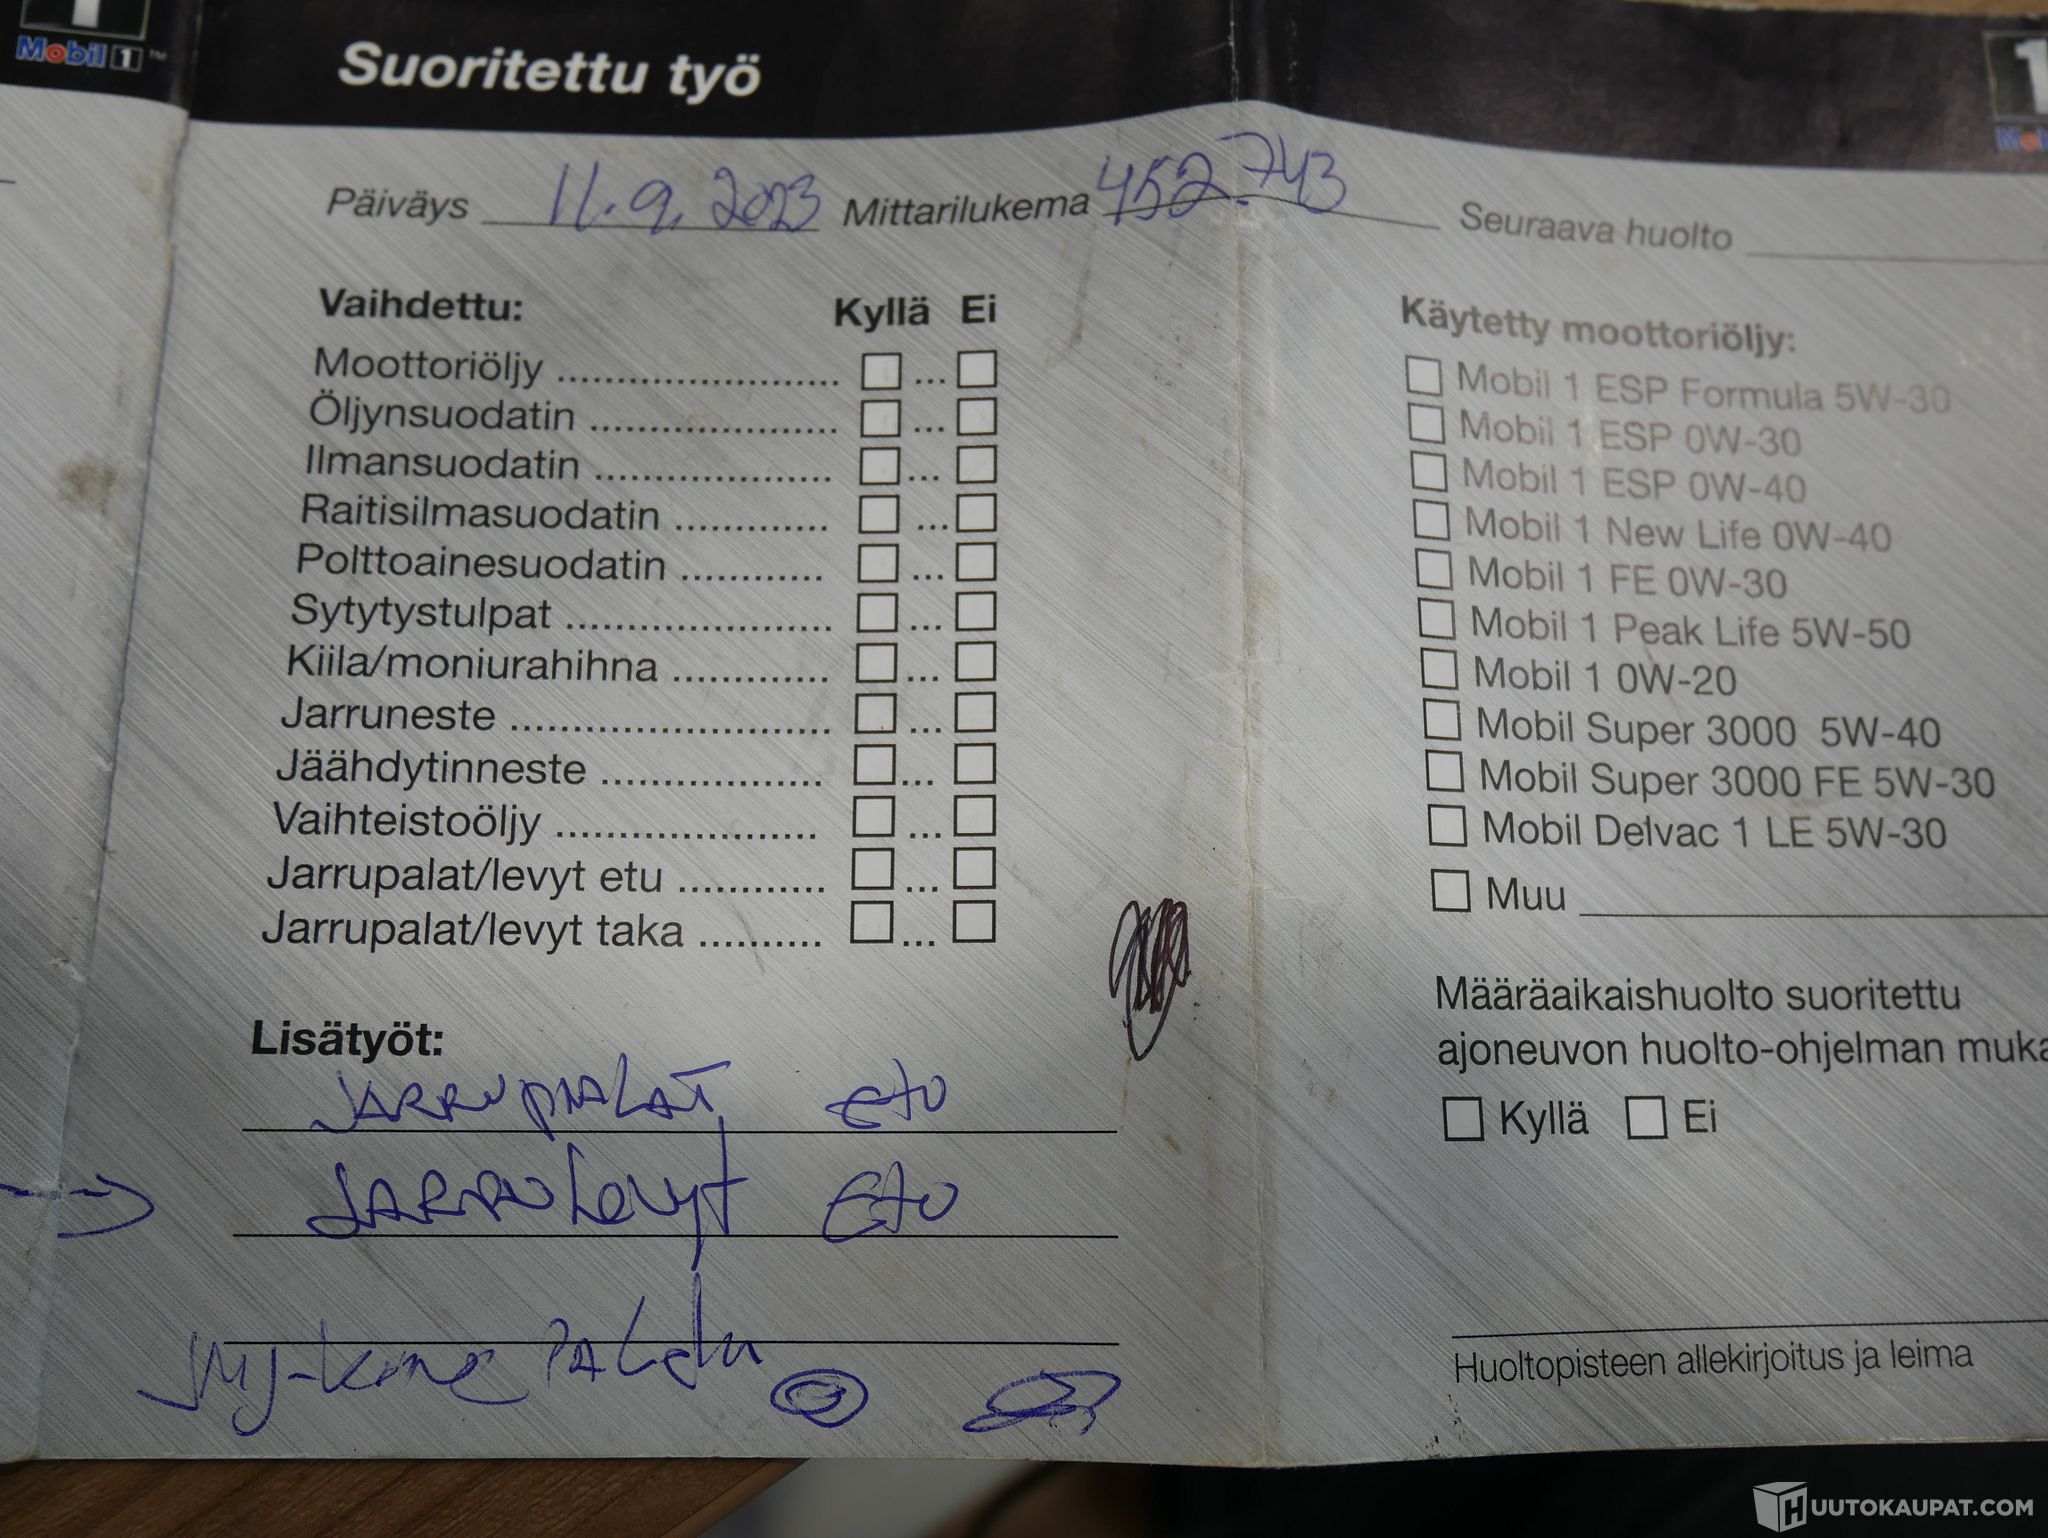 1
Mobil 1™
Suoritettu työ
1
Mob
Päiväys 11.9.2023 Mittarilukema 452.743 Seuraava huolto
Vaihdettu: Kyllä Ei
Moottoriöljy ........................ ...
Öljynsuodatin ..................... ...
Ilmansuodatin .................... ...
Raitisilmasuodatin ............. ...
Polttoainesuodatin ............ ...
Sytytystulpat ...................... ...
Kiila/moniurahihna ............. ...
Jarruneste ........................... ...
Jäähdytinneste ................... ...
Vaihteistoöljy ...................... ...
Jarrupalat/levyt etu ............ ...
Jarrupalat/levyt taka .......... ...
Lisätyöt:
JARRUPALAT ETU
JARRULEVYT ETU
Käytetty moottoriöljy:
Mobil 1 ESP Formula 5W-30
Mobil 1 ESP 0W-30
Mobil 1 ESP 0W-40
Mobil 1 New Life 0W-40
Mobil 1 FE 0W-30
Mobil 1 Peak Life 5W-50
Mobil 1 0W-20
Mobil Super 3000 5W-40
Mobil Super 3000 FE 5W-30
Mobil Delvac 1 LE 5W-30
Muu
Määräaikaishuolto suoritettu
ajoneuvon huolto-ohjelman muka
Kyllä Ei
Huoltopisteen allekirjoitus ja leima
HUUTOKAUPAT.COM